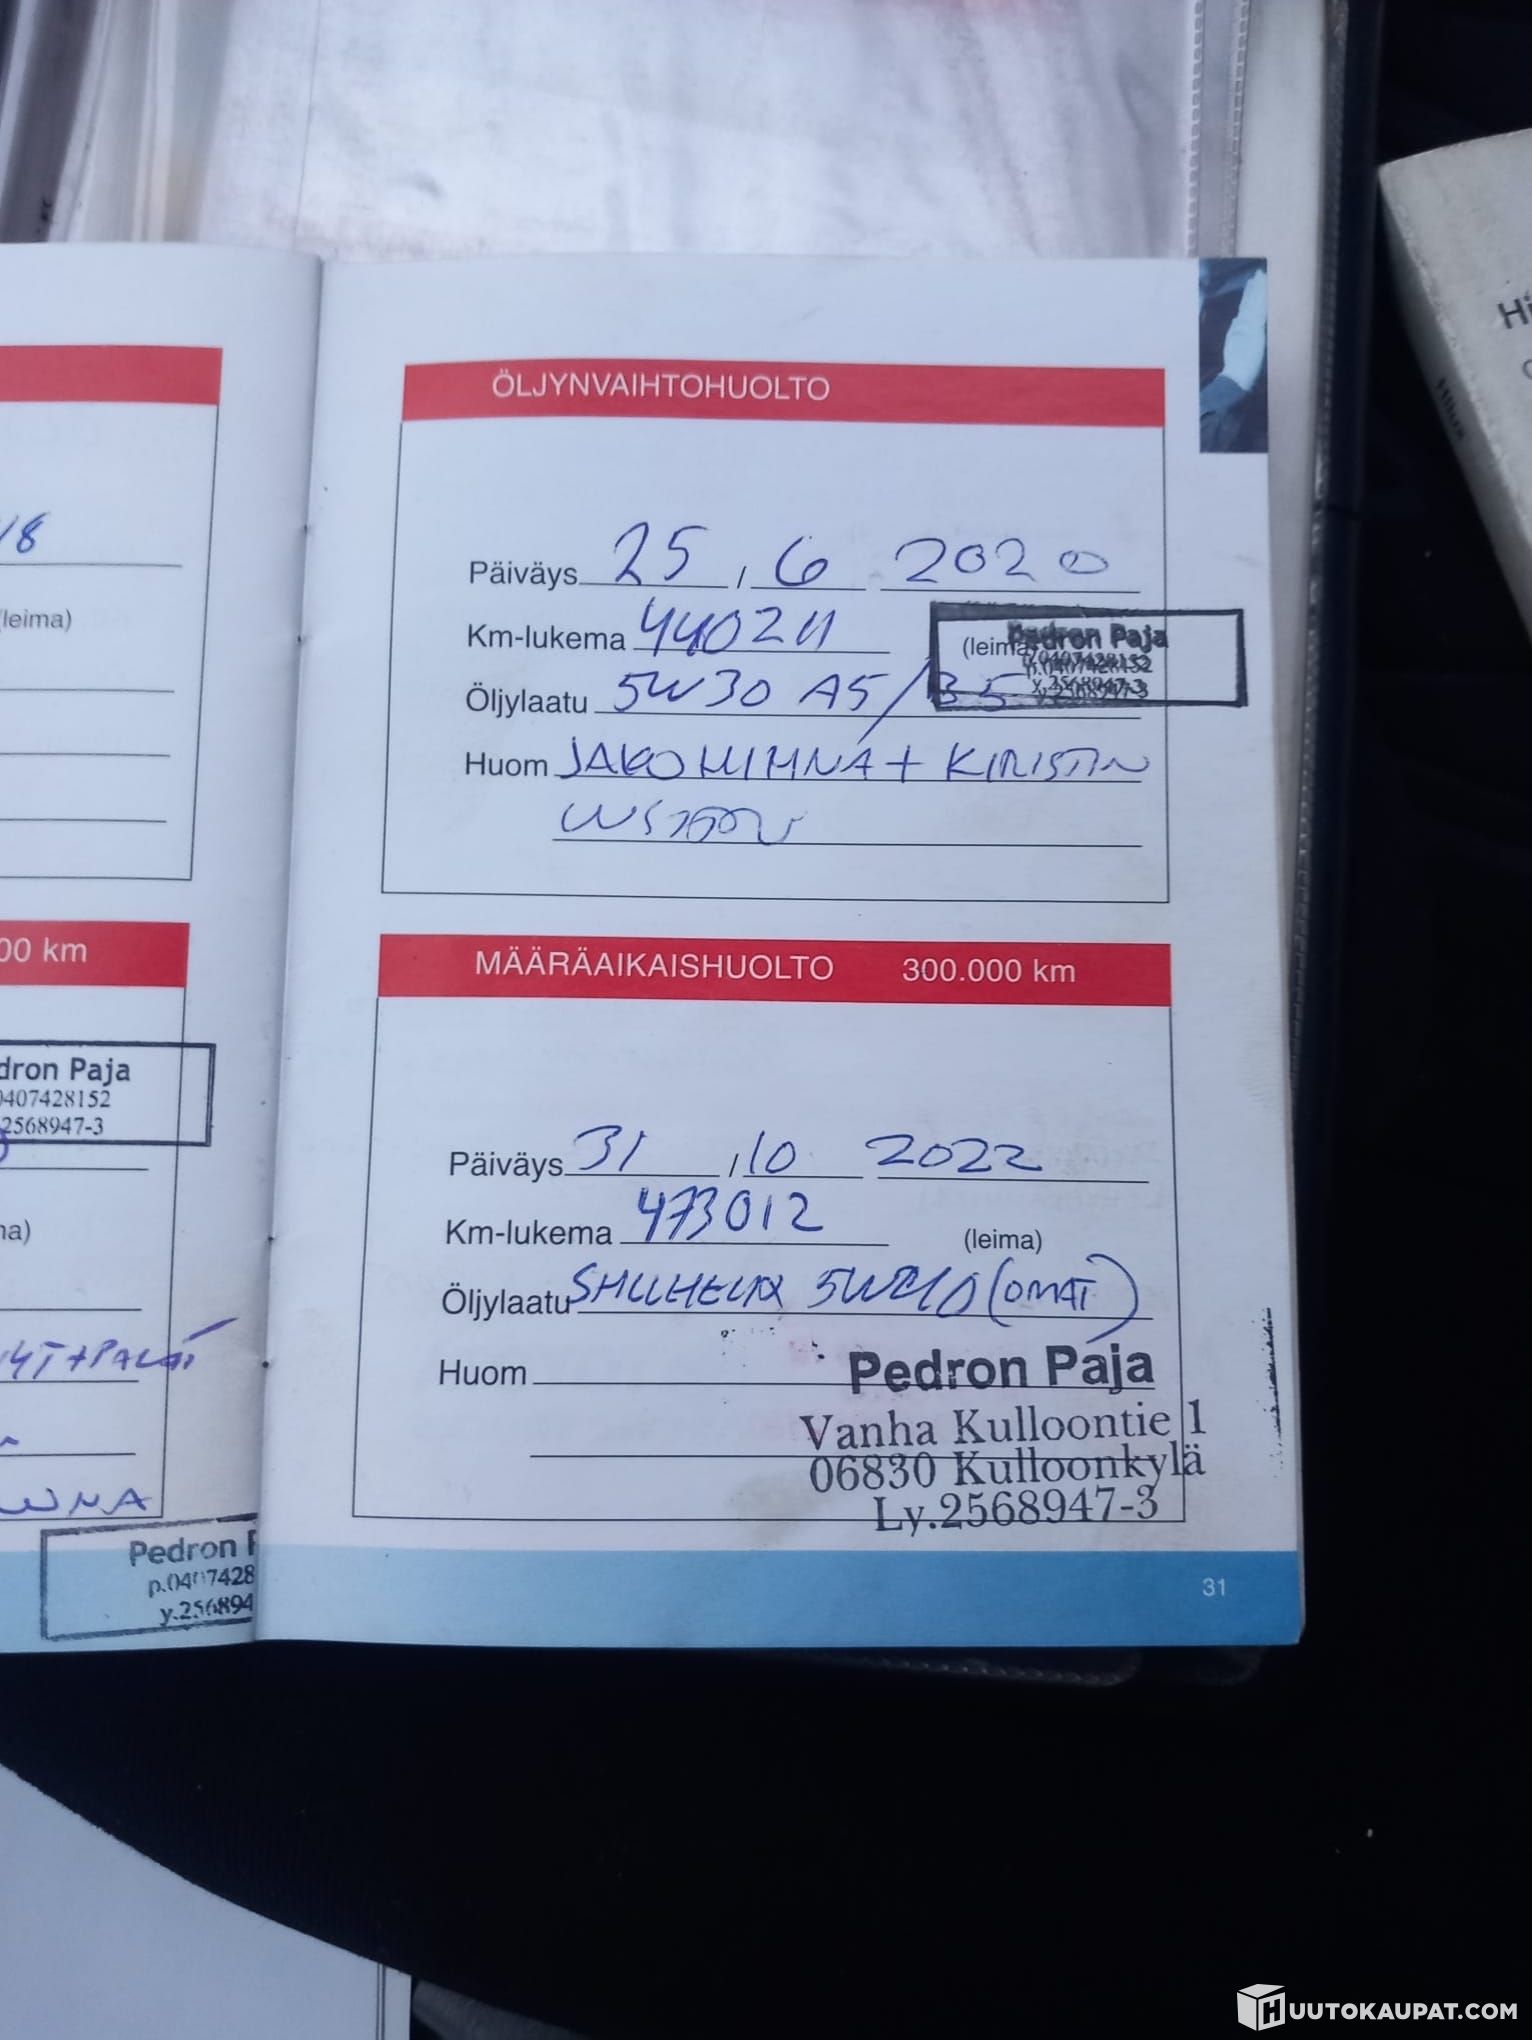 Hi
Hilux
18
(leima)
00 km
dron Paja
0407428152
2568947-3
na)
WNA
Pedron P
p.0407428
y.256894
ÖLJYNVAIHTOHUOLTO
Päiväys 25 / 6 2020
Km-lukema 440211
(leima)
Pedron Paja
p.0407428152
y.2568947-3
Öljylaatu 5W30 A5/B5
Huom JAKOHIHNA + KIRISTIN
MÄÄRÄAIKAISHUOLTO 300.000 km
Päiväys 31 / 10 2022
Km-lukema 473012
(leima)
Öljylaatu SHELL HELIX 5W40 (OMAT)
Huom
Pedron Paja
Vanha Kulloontie 1
06830 Kulloonkylä
Ly.2568947-3
31
HUUTOKAUPAT.COM